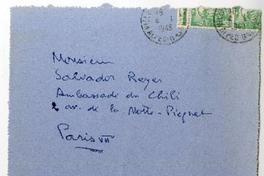 1948
Monsieur
Salvador Reyes
Ambassade du Chili
2 av. de la Motte-Picquet
Paris VII